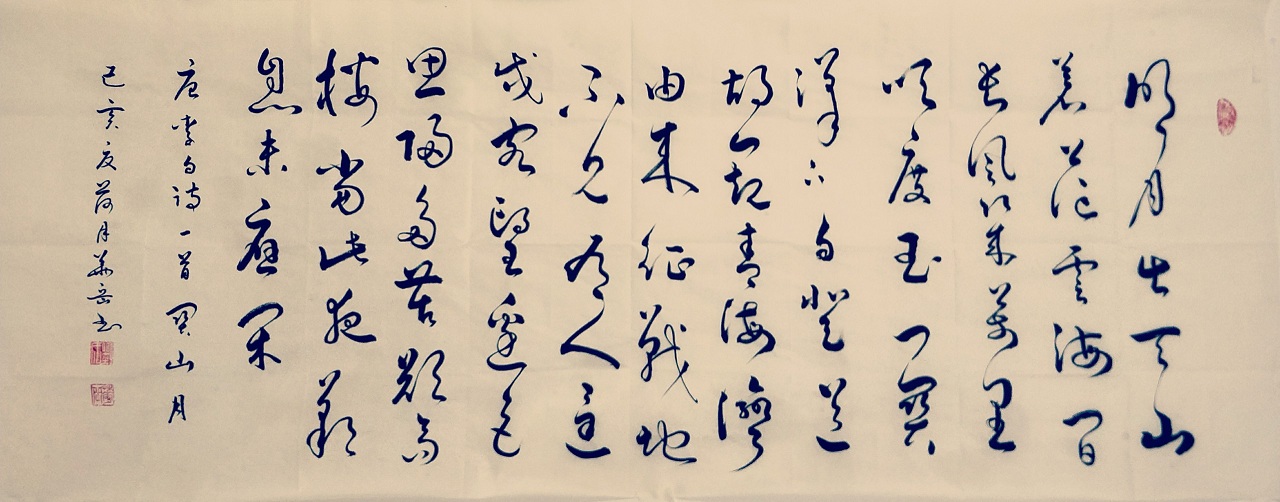 明月出天山
蒼茫雲海間
長風幾萬里
吹度玉門關
漢下白登道
胡窺青海灣
由來征戰地
不見有人還
戍客望邊色
思歸多苦顏高
樓當此夜歎
息未應閑
唐李白詩一首 關山月
己亥夏荷月華岳書